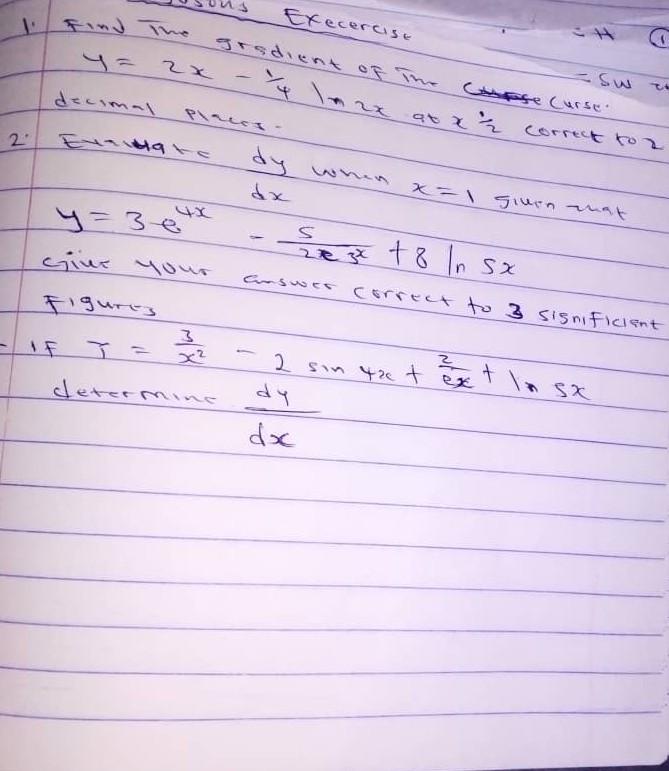 Execercise
= H 1
1. Find The gradient of The Curse.
= SW
y = 2x - 1/4 ln 2x at x 1/2 correct to 2
decimal places.
2. Evaluate dy/dx when x = 1 given that
y = 3e^4x - 5/2e^3x + 8 ln 5x
Give your answer correct to 3 significant
Figures
- IF Y = 3/x² - 2 sin 4x + 2/ex + ln 5x
determine dy/dx